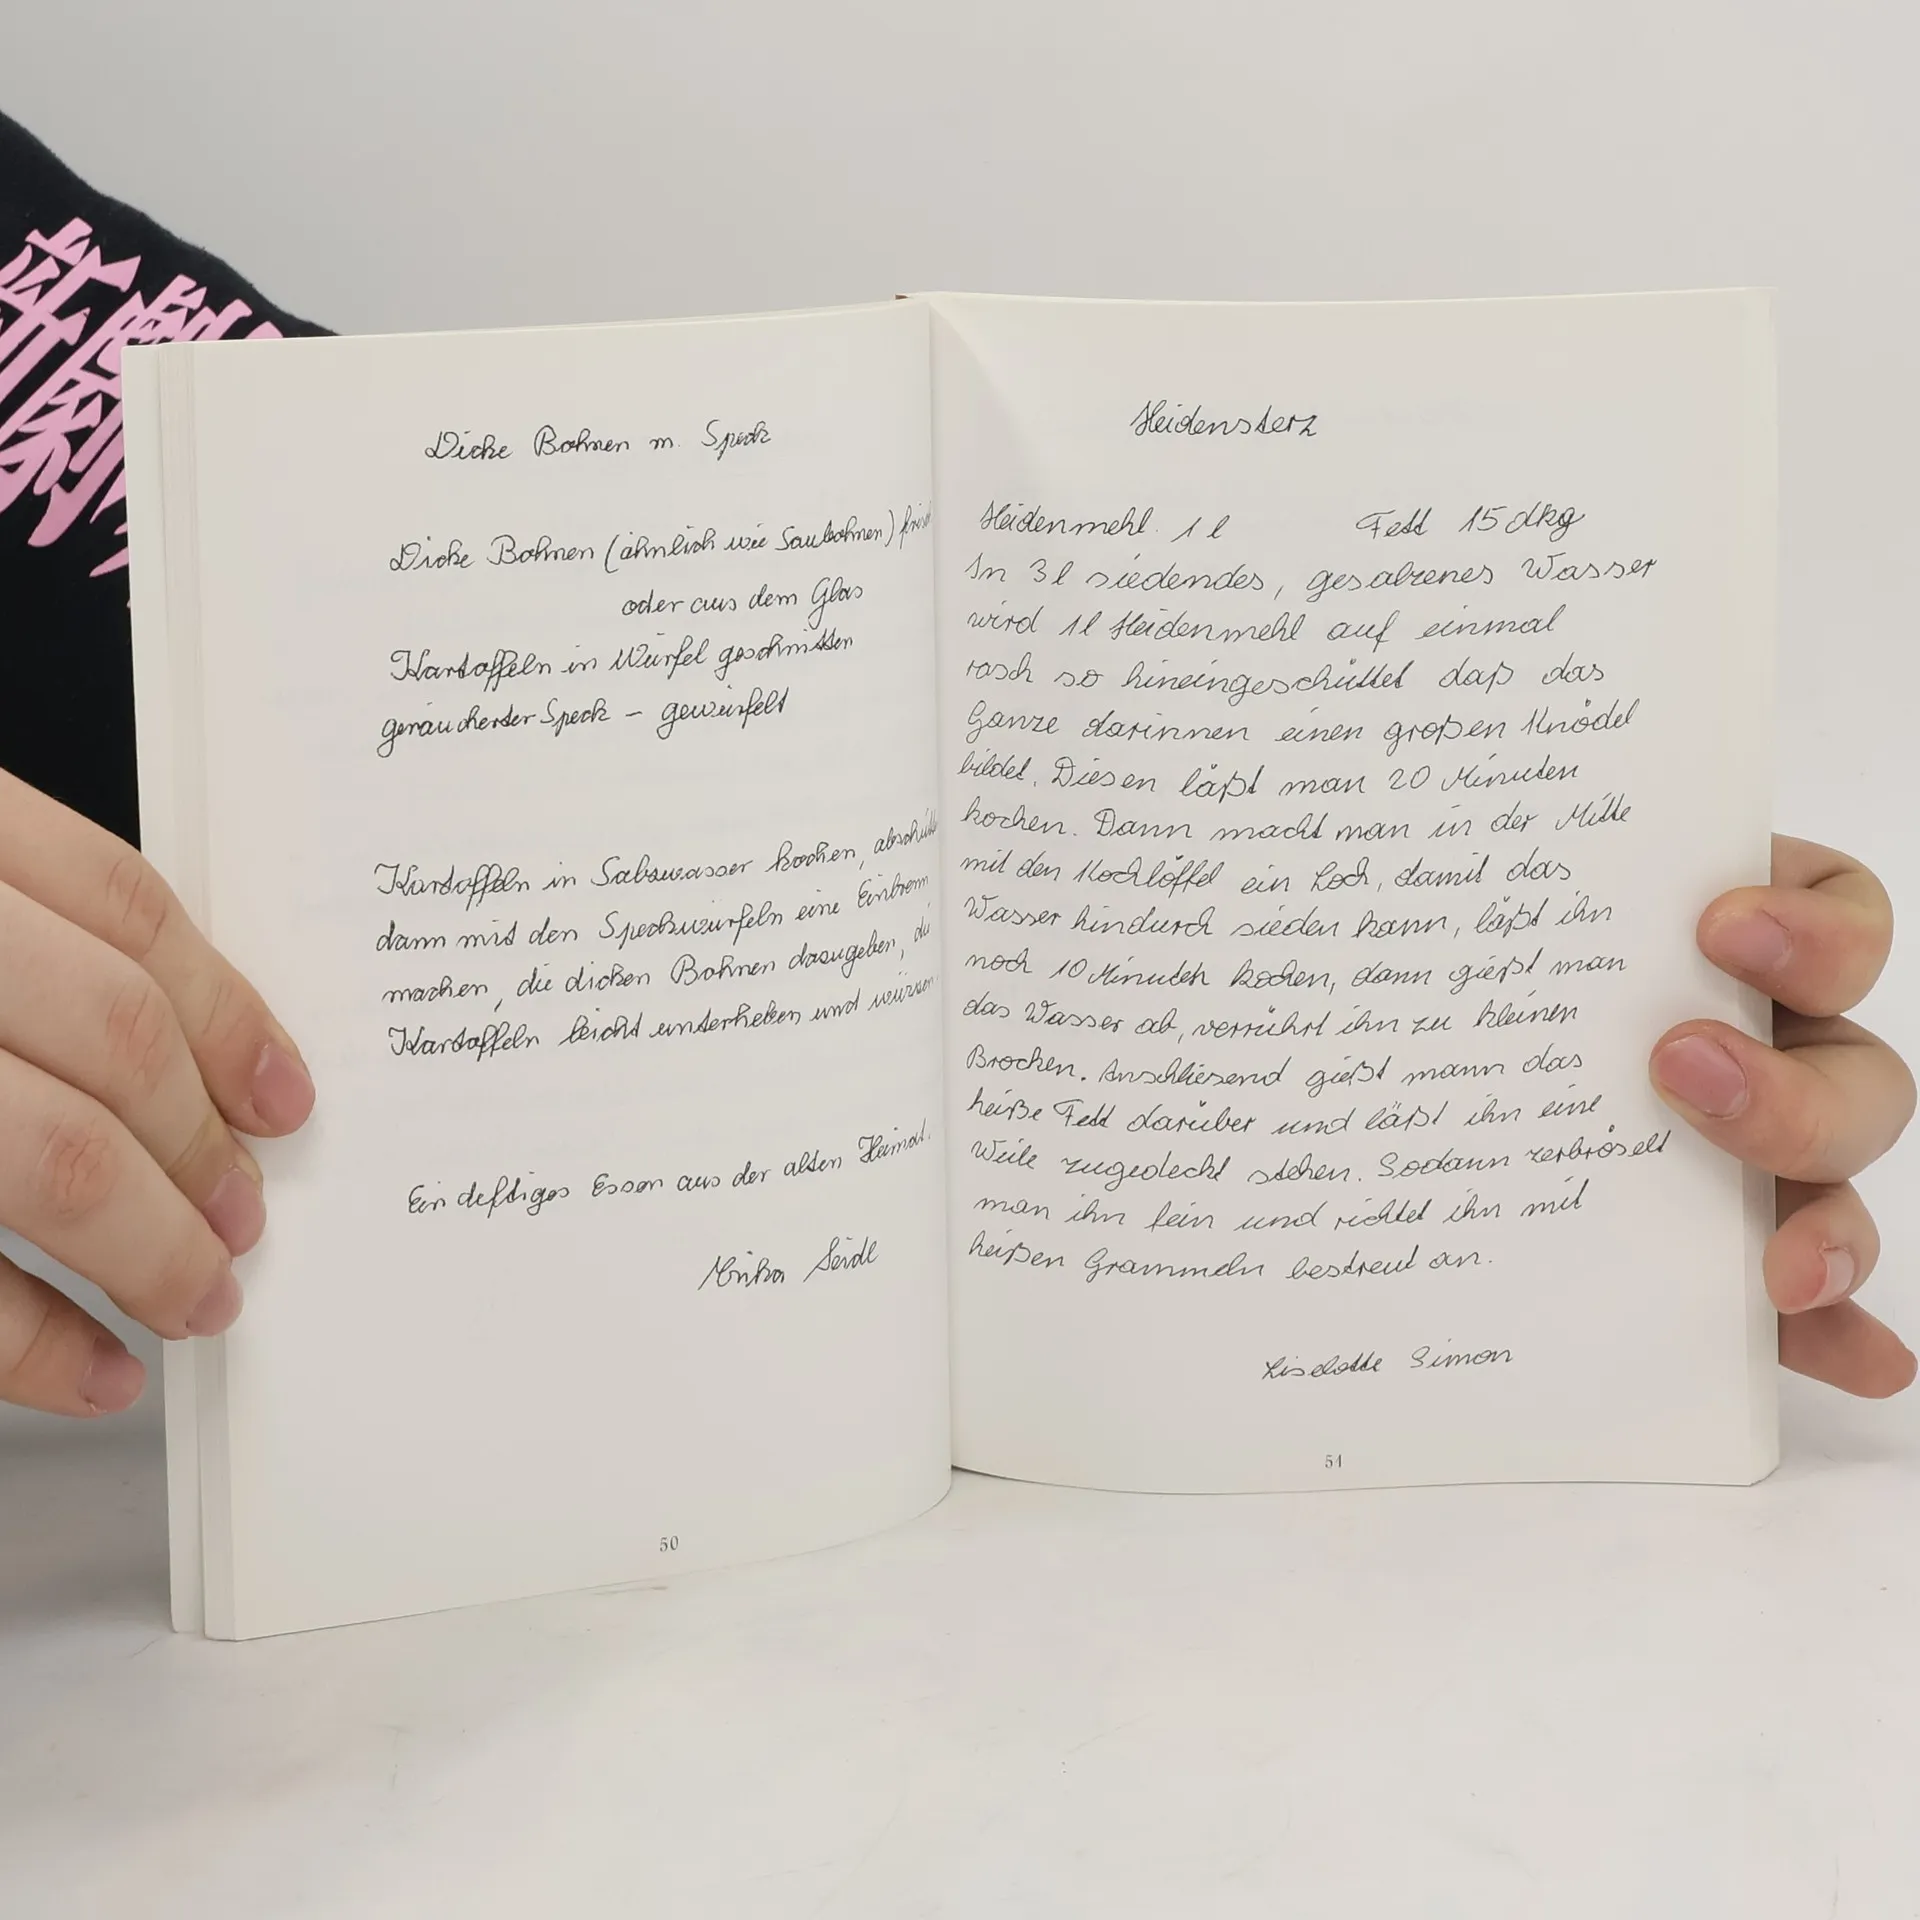 Dicke Bohnen m. Speck
Dicke Bohnen (ähnlich wie Saubohnen)
oder aus dem Glas
Kartoffeln in Würfel geschnitten
geräucherter Speck – gewürfelt
Kartoffeln in Salzwasser kochen,
dann mit den Speckwürfeln eine Einbrenn
machen, die dicken Bohnen dazugeben, die
Kartoffeln leicht unterheben und würzen
Ein deftiges Essen aus der alten Heimat.
Erika Seidl
50
Heidensterz
Heidenmehl. 1 l Fett 15 dkg
In 3 l siedendes, gesalzenes Wasser
wird 1 l Heidenmehl auf einmal
rasch so hineingeschüttet daß das
Ganze darinnen einen großen Knödel
bildet. Diesen läßt man 20 Minuten
kochen. Dann macht man in der Mitte
mit den Kochlöffel ein Loch, damit das
Wasser hindurch sieden kann, läßt ihn
noch 10 Minuten kochen, dann gießt man
das Wasser ab, verrührt ihn zu kleinen
Brocken. Anschliesend gießt mann das
heiße Fett darüber und läßt ihn eine
Weile zugedeckt stehen. Sodann zerbröselt
man ihn fein und richtet ihn mit
heißen Grammeln bestreut an.
Liselotte Simon
51